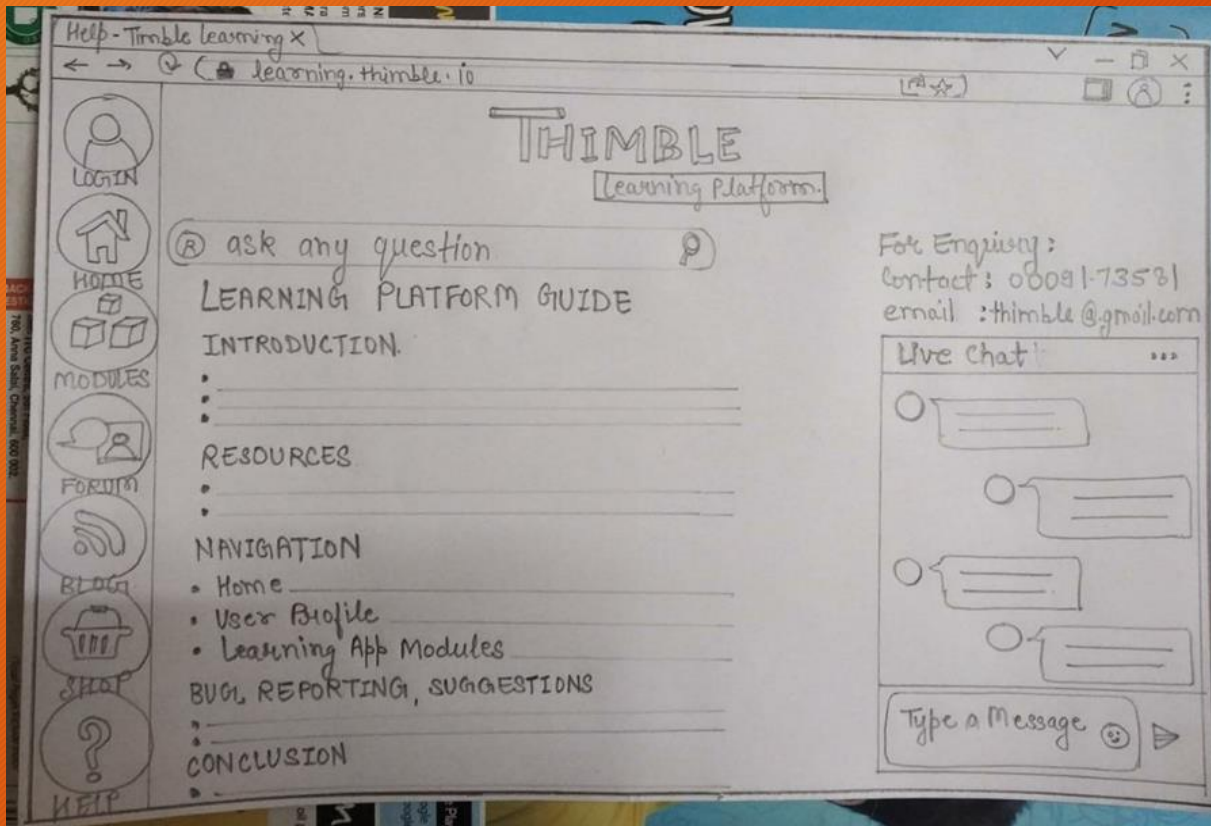 Help - Timble learning X
learning.thimble.io
LOGIN
HOME
MODULES
FORUM
BLOG
SHOP
HELP
THIMBLE
Learning Platform.
ask any question
LEARNING PLATFORM GUIDE
INTRODUCTION.
RESOURCES
NAVIGATION
• Home
• User Profile
• Learning App Modules
BUG, REPORTING, SUGGESTIONS
CONCLUSION
For Enquiry:
Contact: 00091-73581
email :thimble@gmail.com
Live Chat
Type a Message
760, Anna Salai, Chennai, 600 002